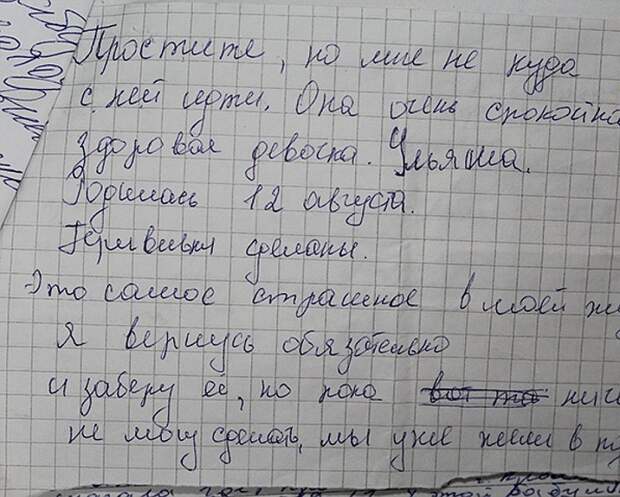 Простите, но мне не куда
с ней идти. Она очень спокойна
здоровая девочка. Ульяша.
Родилась 12 августа.
Прививки сделаны.
Это самое страшное в моей жи
Я вернусь обязательно
и заберу её, но пока вот та ниче
не могу сделать, мы уже жили в